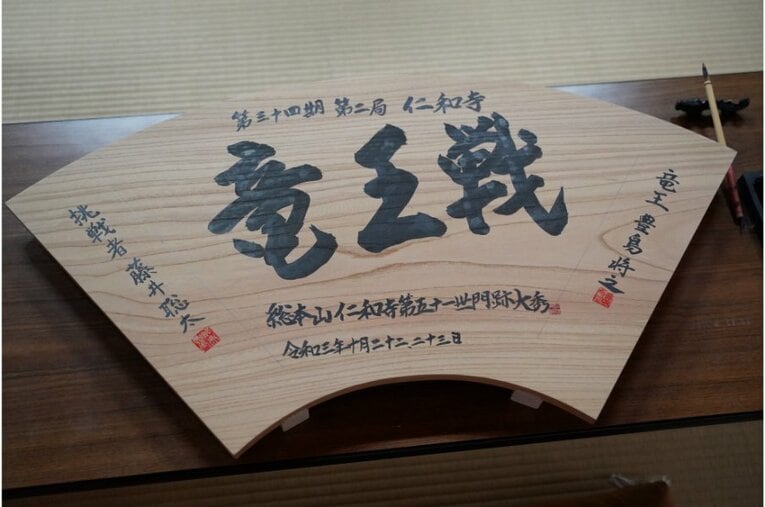 第三十四期 第二局 仁和寺
竜王戦
竜王 豊島将之
挑戦者 藤井聡太
総本山仁和寺第五十一世門跡大秀
令和三年十月二十二、二十三日